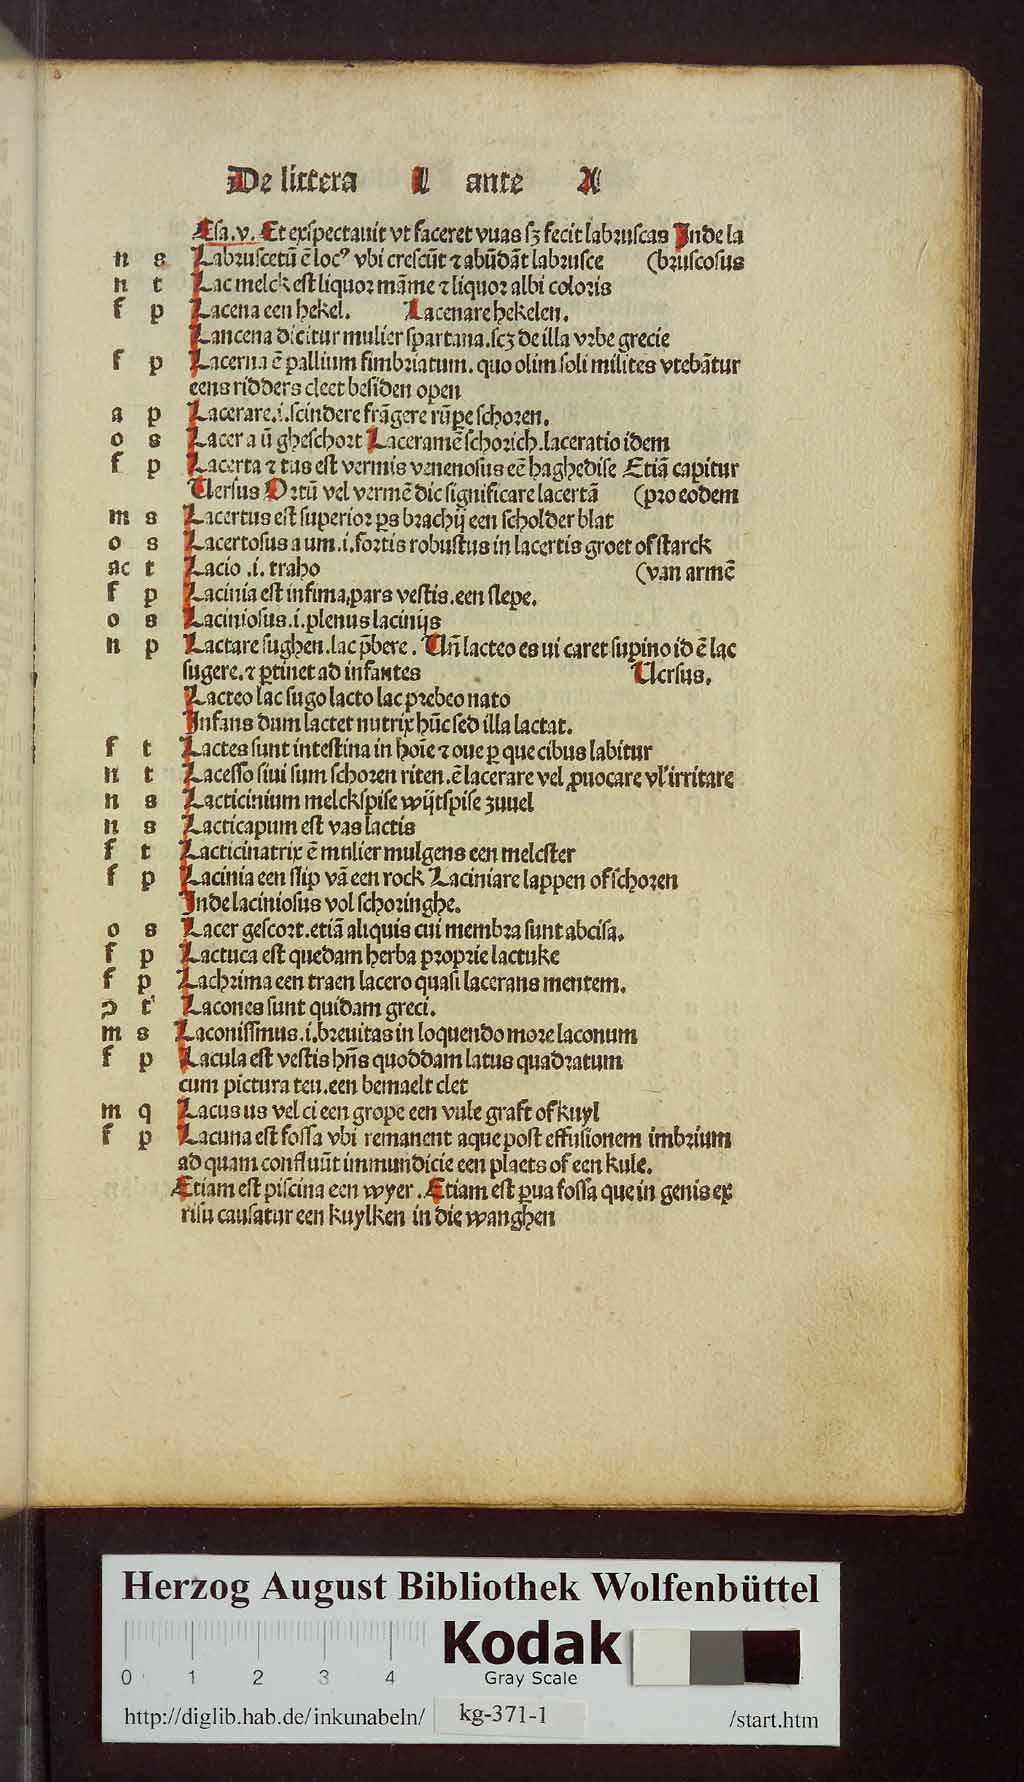 De littera L ante A
Esa.v. Et exspectauit vt faceret vuas sꝫ fecit labruscas Inde la
n s Labruscetū ē locꝰ vbi crescūt ⁊ abūdāt labrusce (bruscosus
n t Lac melck est liquor māme ⁊ liquor albi coloris
f p Lacena een hekel. Lacenare hekelen.
Lancena dicitur mulier spartana.scꝫ de illa vrbe grecie
f p Lacerna ē pallium fimbriatum. quo olim soli milites vtebātur
eens ridders cleet besiden open
a p Lacerare.i.scindere frāgere rūpe schoren.
o s Lacer a ū gheschort Laceramē schorich.laceratio idem
f p Lacerta ⁊ tus est vermis venenosus eē haghedise Etiā capitur
Versus Ortū vel vermē dic significare lacertā (pro eodem
m s Lacertus est superior ps brachij een scholder blat
o s Lacertosus a um.i.fortis robustus in lacertis groet of starck
ac t Lacio .i. traho (van armē
f p Lacinia est infima,pars vestis.een slepe.
o s Laciniosus.i.plenus lacinijs
n p Lactare sughen.lac p̄bere. Vn̄ lacteo es ui caret supino id ē lac
sugere.⁊ ꝑtinet ad infantes Versus.
Lacteo lac sugo lacto lac prebeo nato
Infans dum lactet nutrix hūc sed illa lactat.
f t Lactes sunt intestina in hoīe ⁊ oue ꝑ que cibus labitur
n t Lacesso siui sum schoren riten.ē lacerare vel ꝓuocare vl' irritare
n s Lacticinium melckspise wijtspise zuuel
n s Lacticapum est vas lactis
f t Lacticinatrix ē mulier mulgens een melcster
f p Lacinia een slip vā een rock Laciniare lappen of schoren
Inde laciniosus vol schoringhe.
o s Lacer gescort.etiā aliquis cui membra sunt abcisa.
f p Lactuca est quedam herba proprie lactuke
f p Lachrima een traen lacero quasi lacerans mentem.
ꝯ t' Lacones sunt quidam greci.
m s Laconissimus.i.breuitas in loquendo more laconum
f p Lacula est vestis hn̄s quoddam latus quadratum
cum pictura teu.een bemaelt clet
m q Lacus us vel ci een grope een vule graft of kuyl
f p Lacuna est fossa vbi remanent aque post effusionem imbrium
ad quam confluūt immundicie een plaets of een kule.
Etiam est piscina een wyer. Etiam est ꝑua fossa que in genis ex
risu causatur een kuylken in die wanghen
Herzog August Bibliothek Wolfenbüttel
Kodak
0 1 2 3 4 Gray Scale
http://diglib.hab.de/inkunabeln/ kg-371-1 /start.htm